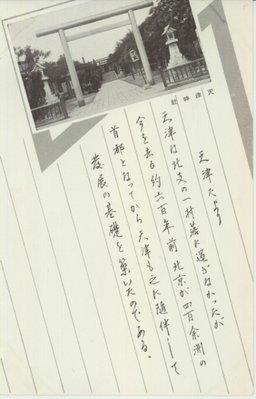 天津神社
天津だより
天津は北支の一村落に過ぎなかったが
今を去る約六百年前北京が四百余洲の
首都となってから天津も之に随伴して
発展の基礎を築いたのである。